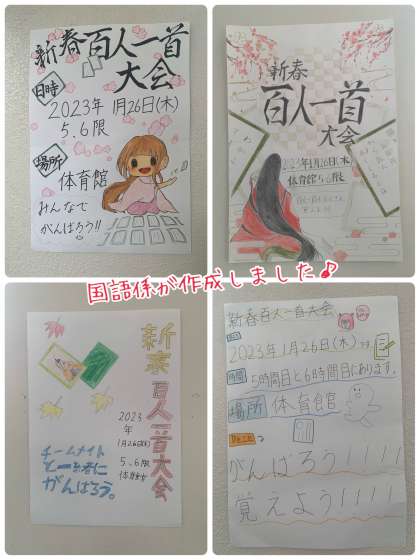 新春百人一首
大会
日時
2023年 1月26日(木)
5.6限
場所
体育館
みんなで
がんばろう!!
新春
百人一首
大会
2023年1月26日(木)
体育館 5,6限
国語係が作成しました♪
新春百人一首大会
2023
年
1月26日(木)
5.6限
体育館
チームメイト
と一緒に
がんばろう。
新春百人一首大会
2023年1月26日(木)です
時間 5時間目と6時間目にあります。
場所 体育館
がんばろう!!!!
覚えよう!!!!